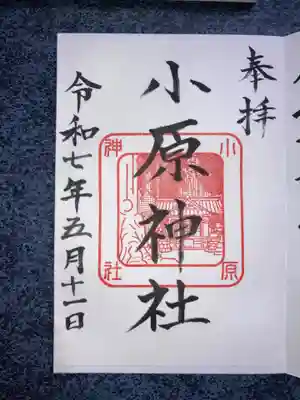 奉拝
小原神社
小原
神社
令和七年五月十一日